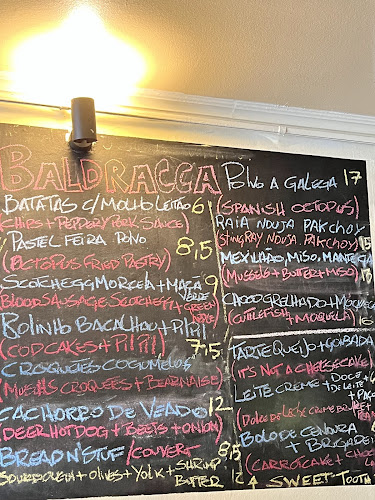 BALDRACCA
BATATAS C/MOLHO LEITÃO 6
(CHIPS + PEPPERY PORK SAUCE)
PASTEL FEIRA POLVO 8,5
(OCTOPUS FRIED PASTRY)
SCOTCHEGG MORCELA + MAÇA VERDE 9
(BLOOD SAUSAGE SCOTCHEGG + GREEN APPLE)
BOLINHO BACALHAU + PILPIL
(COD CAKES + PILPIL) 7,5
CROQUETES COGUMELOS
(MUSHIES CROQUEES + BEARNAISE)
CACHORRO DE VEADO 12
(DEER HOT DOG + BEETS + ONION)
BREAD N' STUF / COUVERT 8,5
SOURDOUGH + OLIVES + YOLK + SHRIMP BUTTER
POLVO A GALEGA 17
(SPANISH OCTOPUS)
RAIA NDUJA PAKCHOY
(STINGRAY NDUJA PAKCHOY) 15
MEXILHAO, MISO, MANTEIGA
(MUSSELS + BUTTER + MISO)
CHOCO GRELHADO + MOQUECA
(CUTTLEFISH + MOQUELA) 16
TARTE QUEIJO + GOIABADA
(IT'S NOT A CHEESECAKE)
LEITE CREME + DOCE DE LEITE
(DOLCE DE LECHE CREME BRULEE
BOLO DE CENOURA + BRIGADEI
(CARROT CAKE + CHOC
SWEET-TOOTH